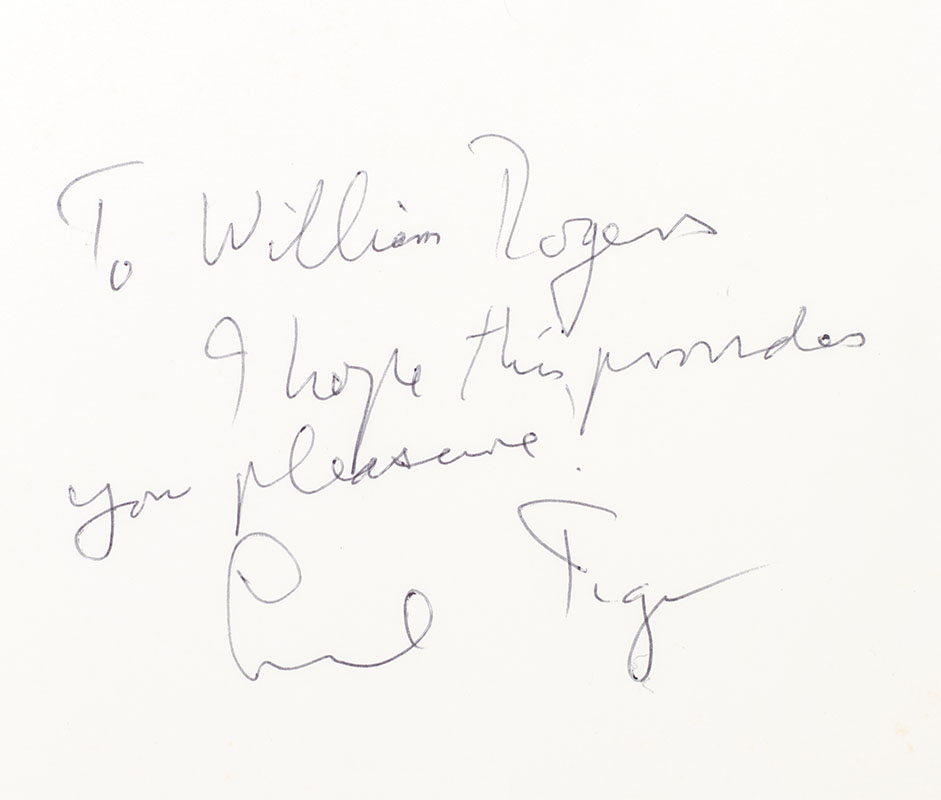 To William Rogers
I hope this provides
you pleasure.
Lionel Tiger